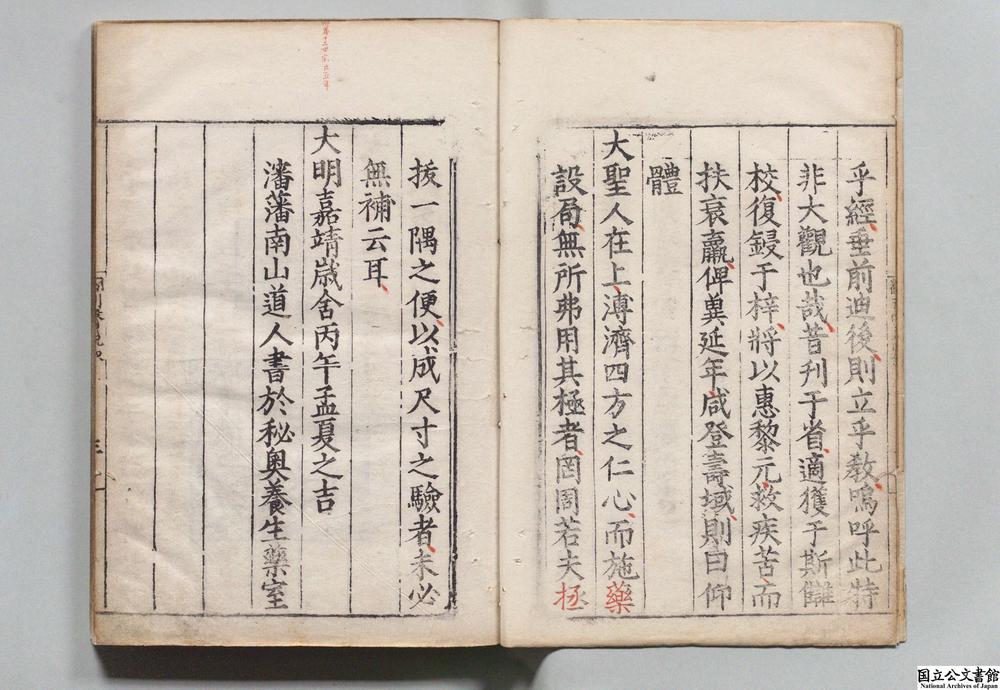 乎經垂前迪後則立乎教嗚呼此特
非大觀也哉昔刊于省適獲于斯讎
校復鋟于梓將以惠黎元救疾苦而
扶衰羸俾冀延年咸登壽域則曰仰
體
大聖人在上溥濟四方之仁心而施藥
設局無所弗用其極者罔周若夫拯
援一隅之便以成尺寸之驗者未必
無補云耳
大明嘉靖歲舍丙午孟夏之吉
瀋藩南山道人書於秘奧養生藥室
国立公文書館
National Archives of Japan